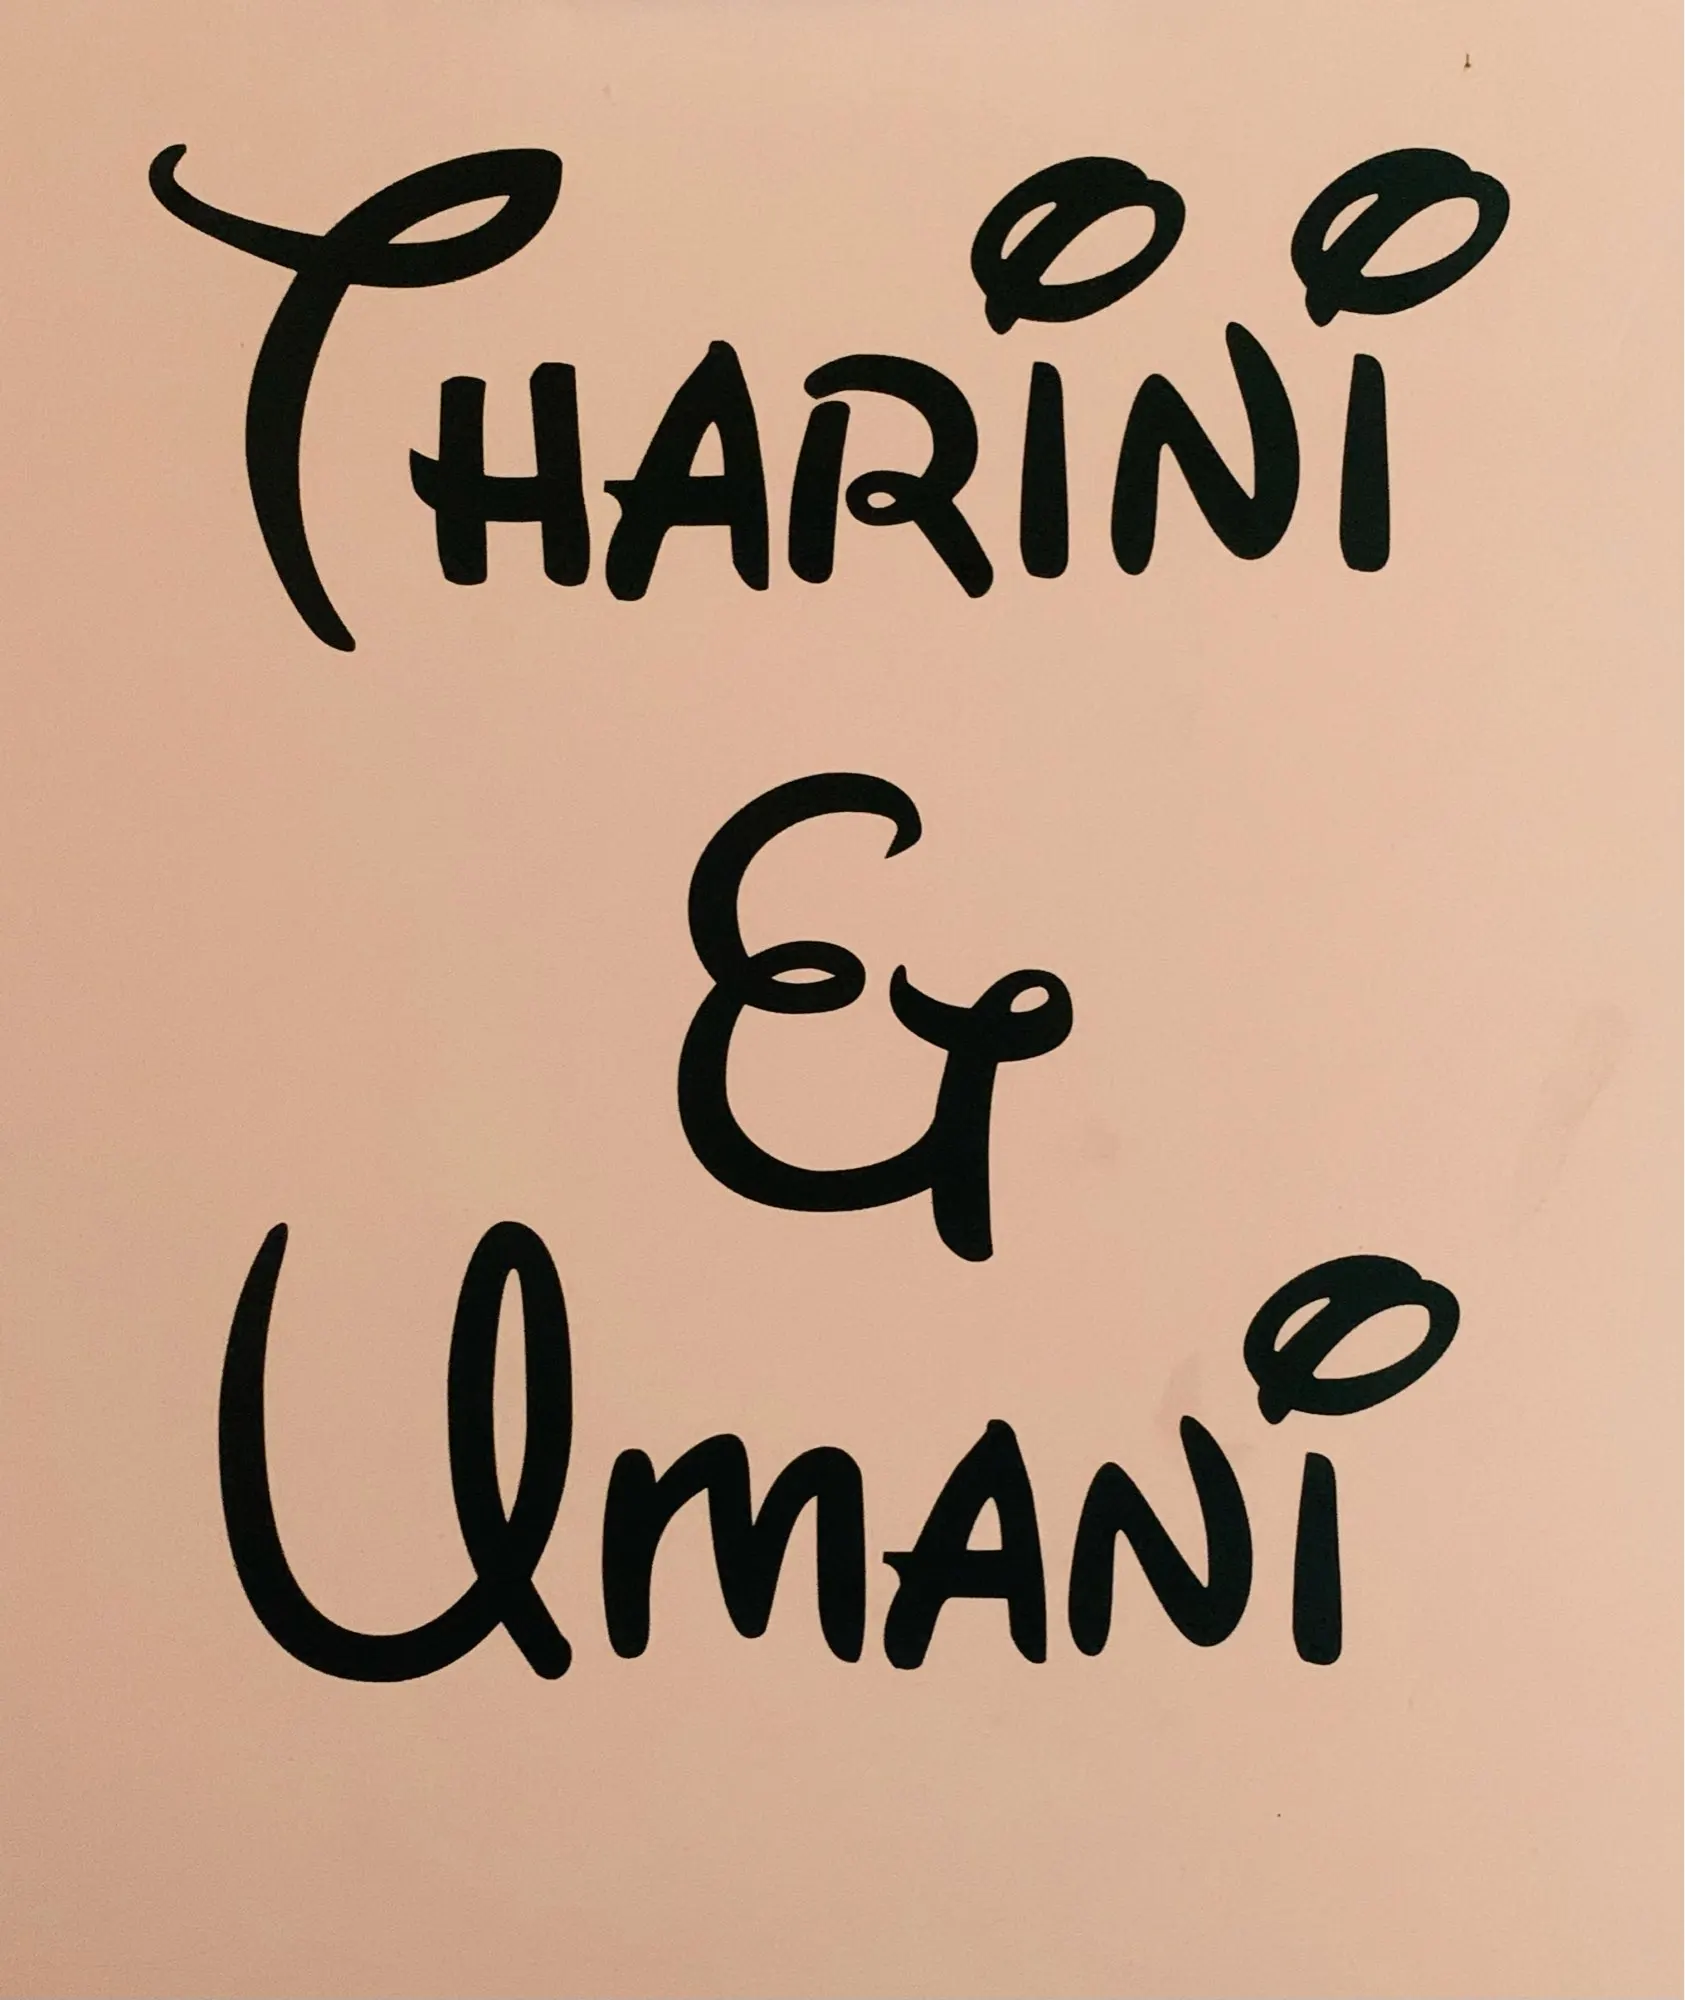 THARiNi
&
UMANi